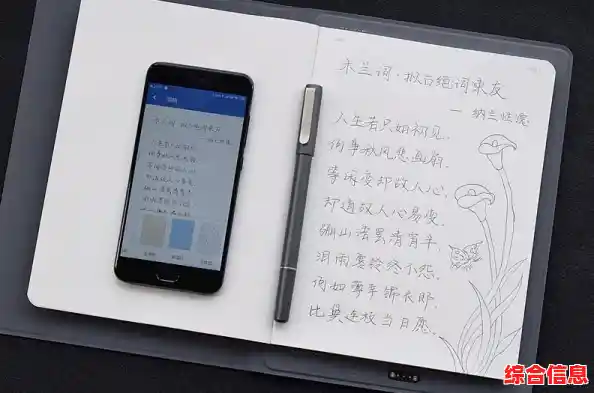 木兰词·拟古绝词柬友
— 纳兰性德
人生若只如初见,
何事秋风悲画扇。
等闲变却故人心,
却道故人心易变。
骊山语罢清宵半,
泪雨霖铃终不怨。
何如薄幸锦衣郎,
比翼连枝当日愿。
综合信息